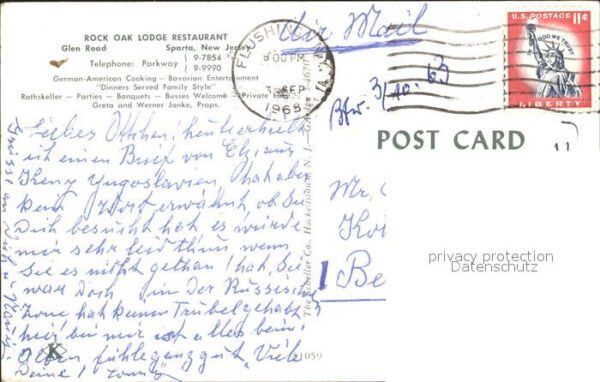 ROCK OAK LODGE RESTAURANT
Glen Road Sparta, New Jersey
Telephone: Parkway 9-7854
9-9990
German-American Cooking — Bavarian Entertainment
"Dinners Served Family Style"
Rathskeller — Parties — Banquets — Busses Welcome — Private Lake
Greta and Werner Janke, Props.
Air Mail
FLUSHING, N.Y.
9:00 PM
3 SEP
1963
U.S. POSTAGE 11¢
IN GOD WE TRUST
LIBERTY
3/10. 63
POST CARD
Liebes Ottchen, heute erhielt
ich einen Brief von Elz, aus
Yugoslavien, hat aber
kein Wort erwähnt ob Sie
Dich besucht hat es würde
mir sehr leid thun wenn
Sie es nicht gethan hat, Sie
war doch in der Russischen
Zone hat keinen Trübel gehabt
hier bei mir ist alles beim
Alten, fühle ganz gut, Viele
Deine
Grüsse an
Mr.
Be
privacy protection
Datenschutz
Co., Hackensack, N. J.
K
059